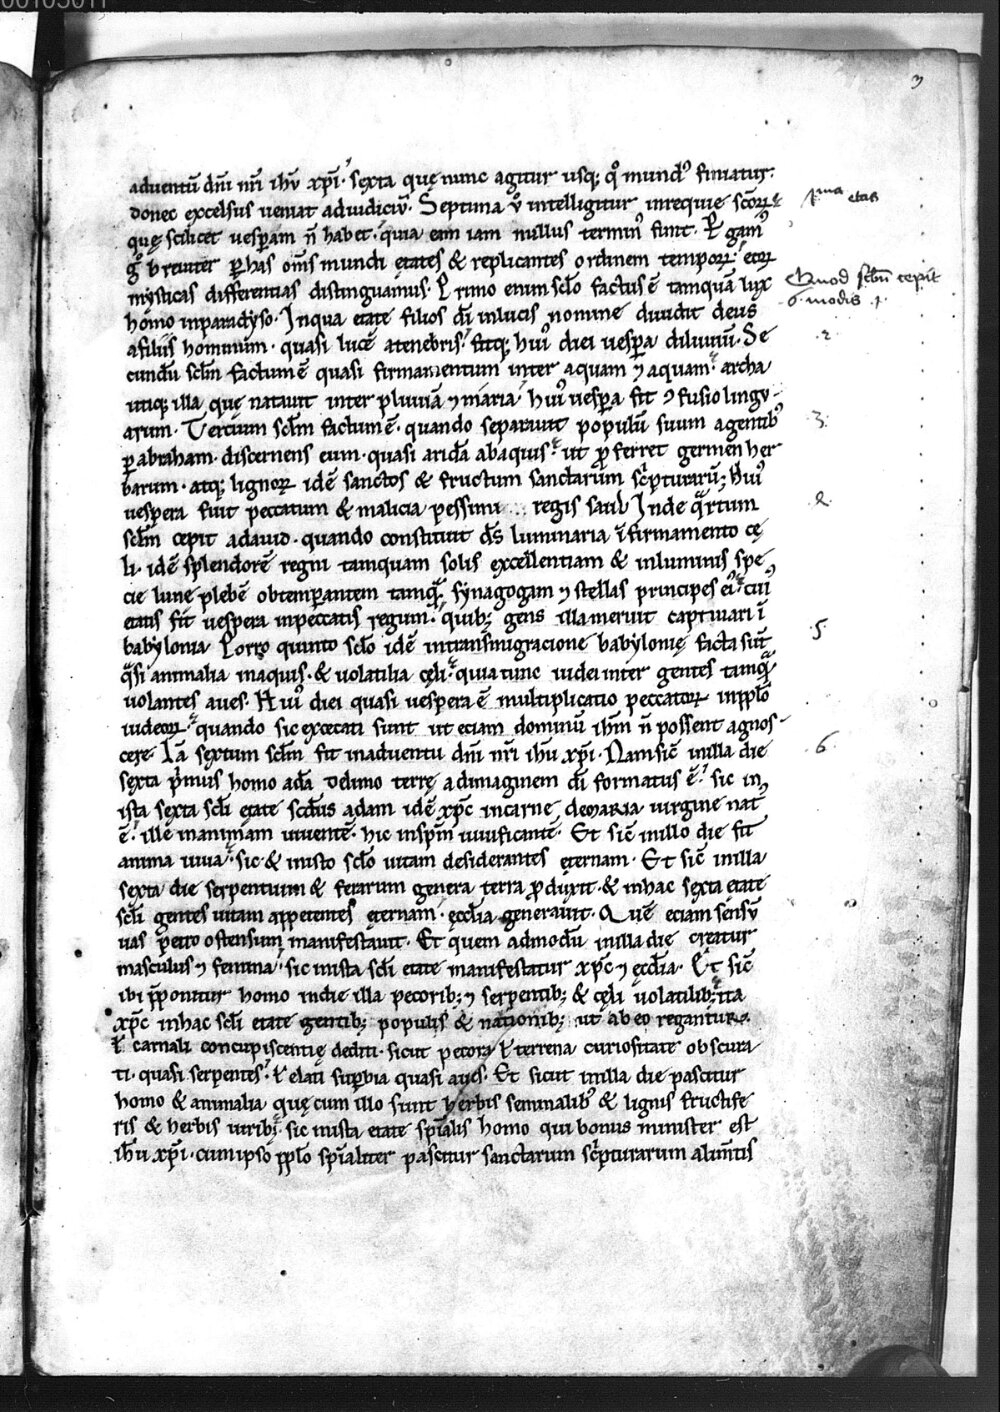 3
aduentū dn̄i nr̄i ihū xp̄i. sexta quę nunc agitur usq; q̊ mund' finiatur.
donec excelsus ueniat ad iudiciū. Septima ů intelligitur in requie scōꝝ.
quę scilicet uesperam n̄ habet. quia eam iam nullus termin' finit.
g̊ breuiter ꝑ has om̄s mundi ętates & replicantes ordinem temporꝝ. eorꝝ
mysticas differentias distinguamus. Primo enim scl̄o factus ē tamquā lux
homo in paradyso. In qua etate filios dī in lucis nomine diuidit deus
a filiis hominum. quasi lucē a tenebris. fitq; hui' diei uespera diluuiū. Se
cundū scl̄m factum ē quasi firmamentum inter aquam ⁊ aquam. archa
utiq; illa quę natauit inter pluuiā ⁊ maria. hui' uespera fit ꝯfusio lingu
arum. Tercium scl̄m factum ē. quando separauit populū suum a gentib'
ꝑ abraham. discernens eum. quasi aridā ab aquis. ut ꝓferret germen her
barum. atq; lignoꝝ idē sanctos & fructum sanctarum sc̄pturarū; Hui'
uespera fuit peccatum & malicia pessimi regis saul Inde qͣrtum
scl̄m cepit a dauid. quando constituit d̄s luminaria ī firmamento cę
li. idē splendorē regni tamquam solis excellentiam & in luminis spe
cie lune plebē obtemperantem tamqͣ. synagogam ⁊ stellas principes ei'. cui'
etatis fit uespera in peccatis regum. quib; gens illa meruit captiuari ī
babylonia Porro quinto scl̄o idē in transmigracione babylonię facta sūt
qͣsi animalia in aquis. & uolatilia cęli. quia tunc iudei inter gentes tamqͣ
uolantes aues. Hui' diei quasi uespera ē multiplicatio peccatoꝝ in ppl̄o
iudeoꝝ. quando sic excecati sunt ut eciam dominū ihm̄ n̄ possent agnos-
cere. Iā sextum scl̄m fit in aduentu dn̄i nr̄i ihū xp̄i. Nam sic̄ in illa die
sexta primus homo adā de limo terrę ad imaginem dī formatus ē. sic in
ista sexta scl̄i etate scd̄us adam idē xp̄c in carne de maria uirgine nat'
ē. ille in animam uiuentē. hic in spm̄ uiuificantē. Et sic̄ in illo die fit
anima uiua. sic & in isto scl̄o uitam desiderantes ęternam. Et sic̄ in illa
sexta die serpentium & ferarum genera terra ꝓduxit. & in hac sexta etate
scl̄i gentes uitam appetentes ęternam. ęccl̄ia generauit. Quē eciam sensū
uas petro ostensum manifestauit. Et quem admodū in illa die creatur
masculus ⁊ femina. sic in ista scl̄i etate manifestatur xp̄c ⁊ ęccl̄ia. Et sic̄
ibi p̄ponitur homo in die illa pecorib; ⁊ serpentib; & cęli uolatilib; ita
xp̄c in hac scl̄i etate gentib; populis & nationib; ut ab eo regantur.
ł carnali concupiscentię dediti. sicut pecora ł terrena curiositate obscura
ti. quasi serpentes. ł elati superbia quasi aues. Et sicut in illa die pascitur
homo & animalia quę cum illo sunt herbis seminalib' & lignis fructife
ris & herbis uirib;. sic in ista etate sp̄ialis homo qui bonus minister est
ihū xp̄i. cum ipso ppl̄o sp̄ialiter pascitur sanctarum sc̄pturarum alimtis
pma etas
Quod scl̄m
6 modis 1.
2.
3.
5
6.